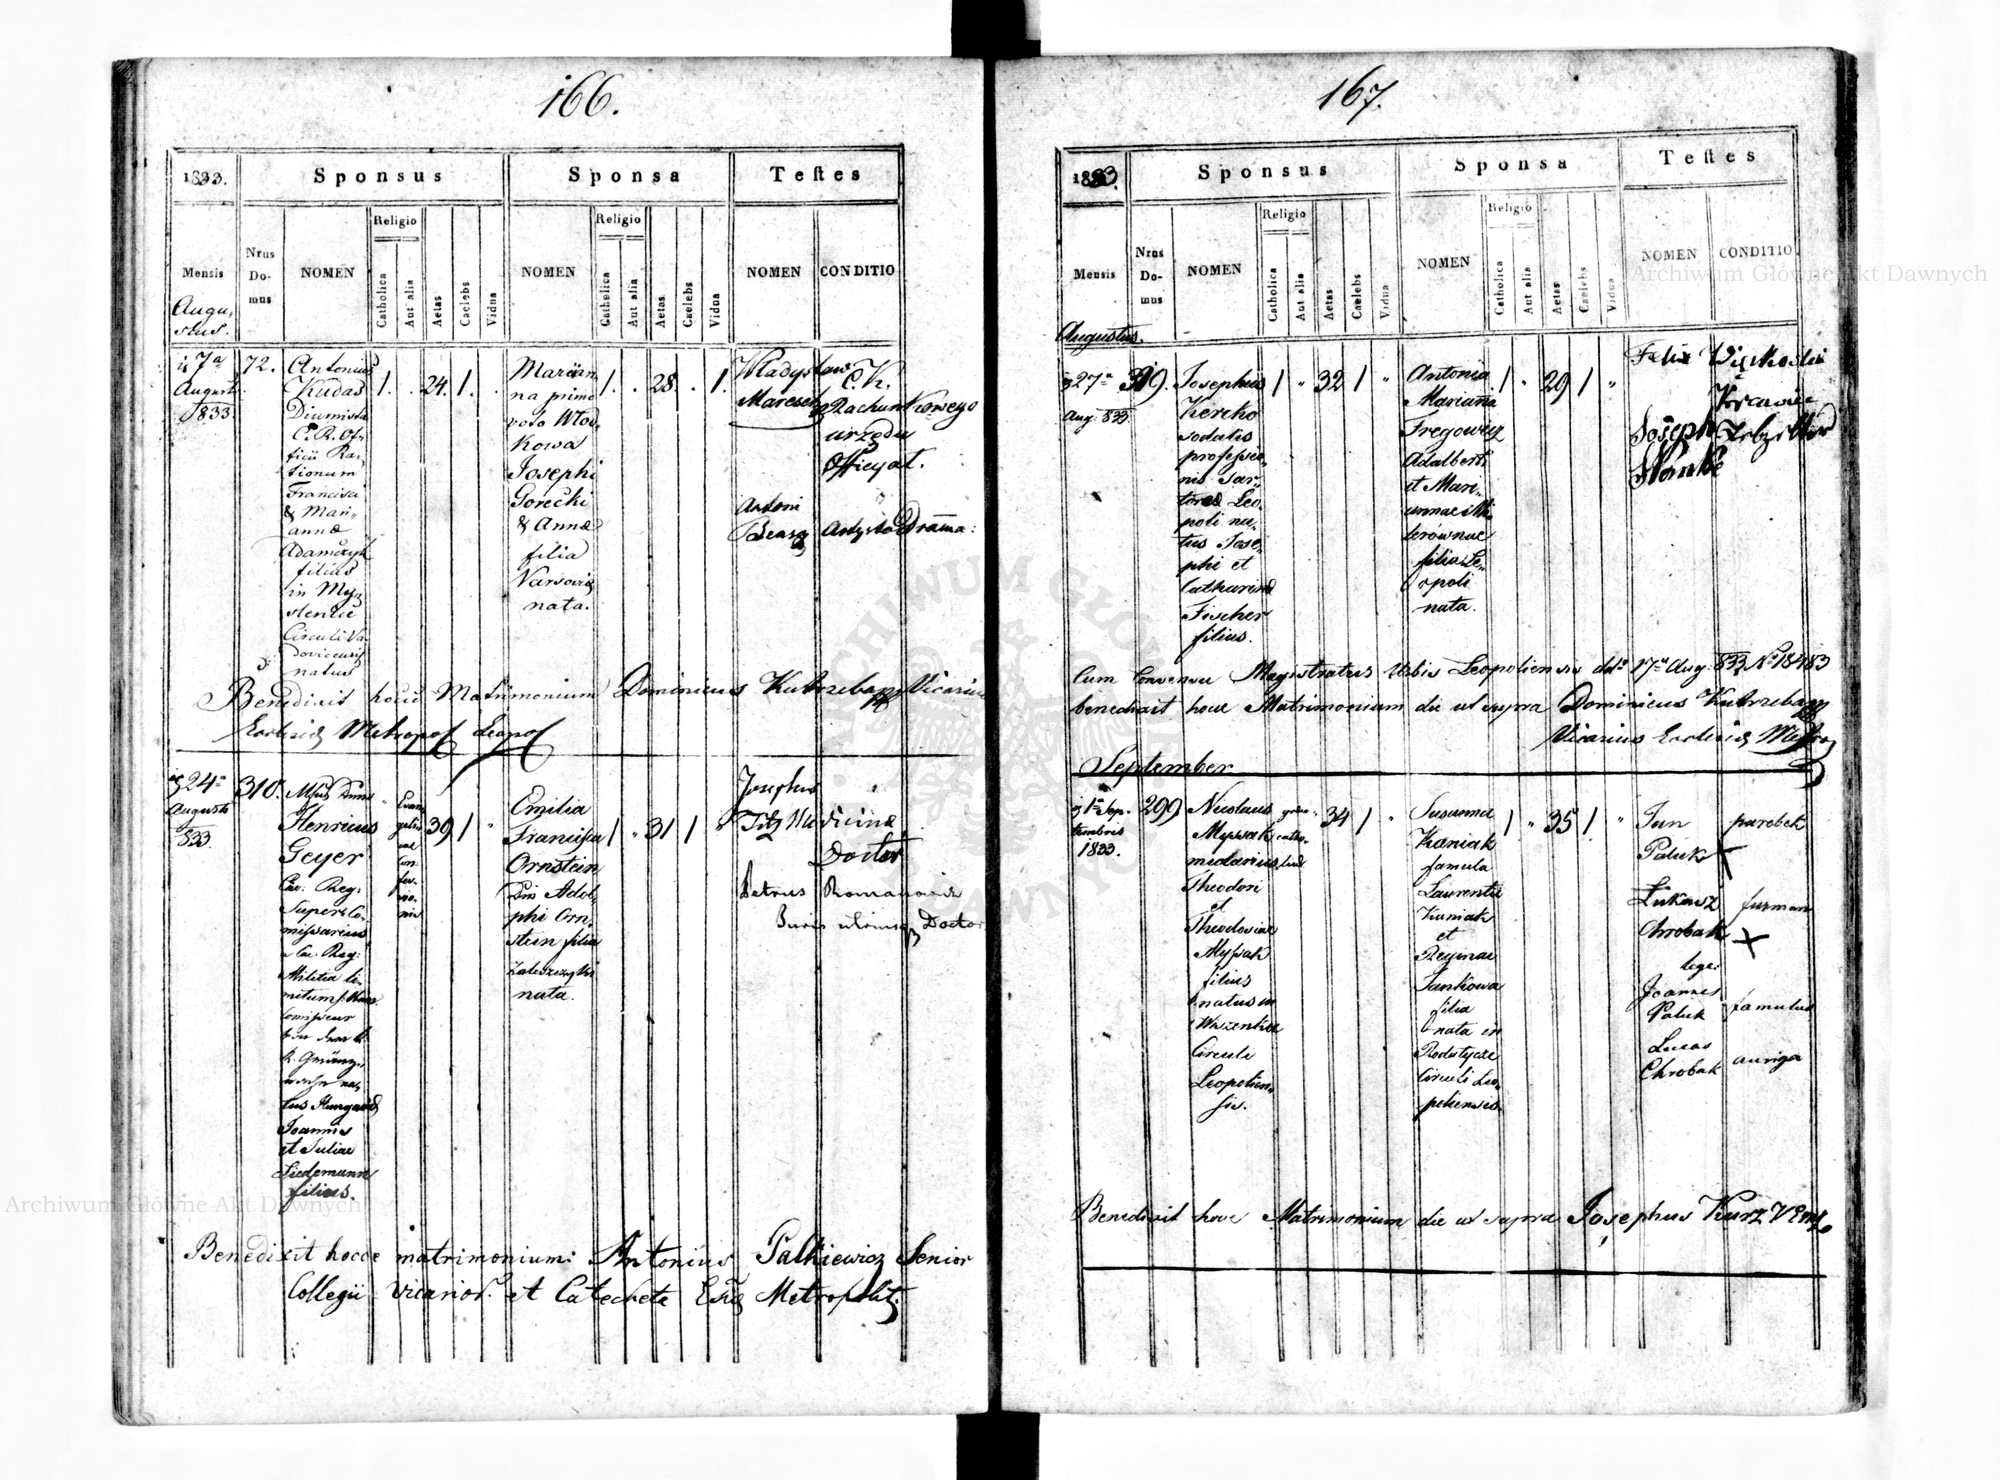 166.
1833.
Sponsus
Sponsa
Testes
Mensis
Nrus Domus
NOMEN
Religio
Catholica
Aut alia
Aetas
Caelebs
Vidua
NOMEN
Religio
Catholica
Aut alia
Aetas
Caelebs
Vidua
NOMEN
CONDITIO
Augu-
stus.
17a
Augusti
1833
72.
Antonius
Kudas
Diurnista
C. R. Of-
ficii Ra-
tionum
Francisci
& Mari-
annae
Adamczyk
filius
in My-
slenice
Circuli Va-
dovicensis
natus
1.
24.
1.
Marian-
na primo
voto Wlod-
kowa
Josephi
Gorecki
& Annae
filia
Varsoviae
nata.
1.
28.
1.
Wladyslaw
Maresch
C. K.
Rachunkowego
urzędu
Officyal.
Antoni
Artysta Drama:
Benedixit hocce Matrimonium Dominicus Kutrzeba Vicarius
Ecclesiae Metropol Leopol
24a
Augusti
833.
310.
Henricus
Geyer
Cae: Reg:
Supers Co-
missarius
Cae. Reg:
Militia li-
mitum
natus Hungariae
Joannis
et Juliae
Liedemann
filius.
Evan-
geli-
cae
con-
fes-
sio-
nis
39
1
"
Emilia
Francisca
Ornstein
Adol-
phi Orn-
stein filia
Zaleszczyki
nata.
1
"
31
1
"
Josephus
Titz
Medicinae
Doctor
Petrus Romanowicz
Juris utriusq Doctor
Benedixit hocce matrimonium: Antonius Palkiewicz Senior
Collegii Vicarior. et Catechete Metropolit:
167.
1833.
Sponsus
Sponsa
Testes
Mensis
Nrus Domus
NOMEN
Religio
Catholica
Aut alia
Aetas
Caelebs
Vidua
NOMEN
Religio
Catholica
Aut alia
Aetas
Caelebs
Vidua
NOMEN
CONDITIO
Augustus.
27a
Aug: 833
Josephus
Kercko
sodalis
professio-
nis Sar-
toreae Leo-
poli na-
tus Jose-
phi et
Catharinae
Fischer
filius.
1
"
32
1
"
Antonia
Marianna
Fregowicz
Adalberti
et Mari-
annae
filia Le-
opoli
nata.
1
"
29
1
"
Felix
Krawiec
Joseph
Cum Consensu Magistratus Urbis Leopoliensis ddto 17a Aug: 833 No 18483
benedixit hocce Matrimonium die ut supra Dominicus Kutrzeba
Vicarius Ecclesiae Metro
September
1a Sep-
tembris
1833.
299
Nicolaus
Myssak
medarius
Theodori
et
Theodosiae
Myssak
filius
natus in
Circuli
Leopolien-
sis.
34
1
"
Susanna
Kaniak
famula
Laurentii
Kaniak
et
Reginae
Jankowa
filia
nata in
Rodatycze
Circuli Leo-
poliensis.
1
"
35
1
"
Jan
Paluk
parobek
Łukasz
Chrobak
furman
lege:
Joannes
Paluk
famulus
Lucas
Chrobak
auriga
Benedixit hocce Matrimonium die ut supra Josephus Kurz
Archiwum Główne Akt Dawnych
Archiwum Główne Akt Dawnych
ARCHIWUM GŁÓWNE AKT DAWNYCH